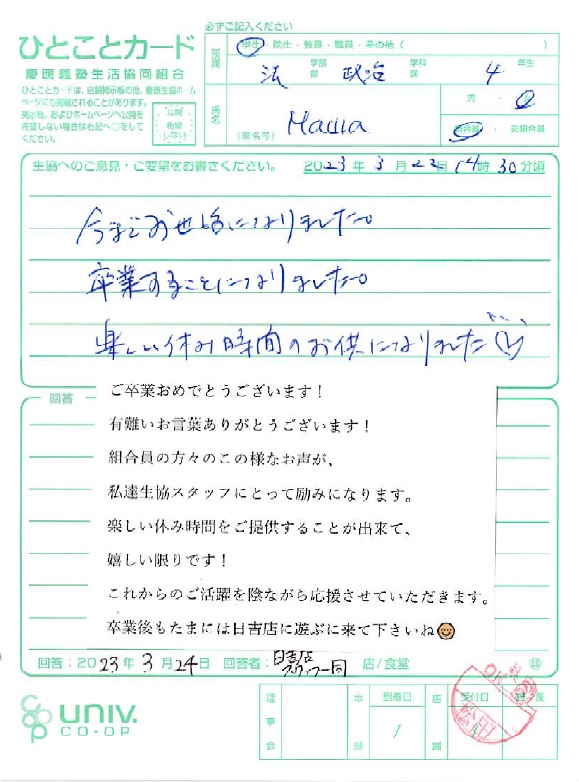 必ずご記入ください
ひとことカード
慶應義塾生活協同組合
ひとことカードは、店舗掲示板の他、慶應生協ホームページにも掲載されることがあります。
掲示物、およびホームページへ公開を希望しない場合は右記へ○をしてください。
公開希望しない
所属
学生・院生・教員・職員・その他（　）
法 学部 政治 学科 4 年生
氏名
（匿名可）
男・女
組合員・非組合員
生協へのご意見・ご要望をお書きください。 2023年3月23日14時30分頃
今までお世話になりました。
卒業することになりました。
楽しい休み時間のお供になりました♡
回答
ご卒業おめでとうございます！
有難いお言葉ありがとうございます！
組合員の方々のこの様なお声が、
私達生協スタッフにとって励みになります。
楽しい休み時間をご提供することが出来て、
嬉しい限りです！
これからのご活躍を陰ながら応援させていただきます。
卒業後もたまには日吉店に遊びに来て下さいね😊
回答：2023年3月24日 回答者：日吉店スタッフ一同 店/食堂 ㊞
UNIV.
CO-OP
理事会
本部
到着日
/
店
受付日